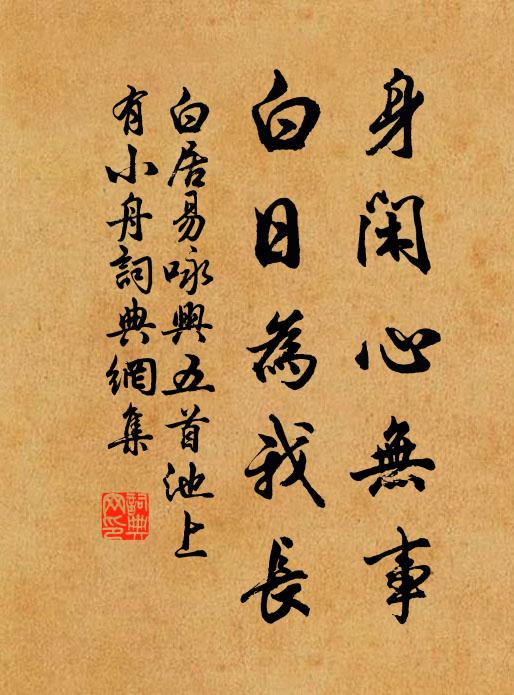 身閑心無事
白日為我長
白居易咏興五首池上
有小舟詞典網集
詞典
网印